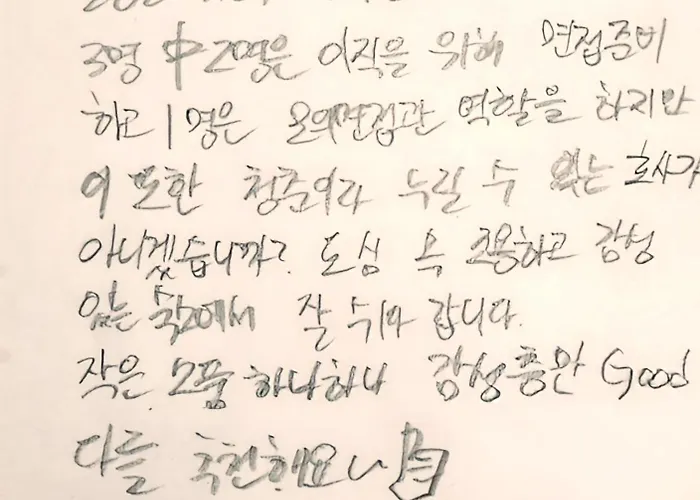 3명 中 2명은 이직을 위해 면접준비
하고 1명은 모의면접관 역할을 하지만
이 또한 청춘이라 누릴 수 있는 호사가
아니겠습니까? 도심 속 조용하고 감성
있는 숙소에서 잘 쉬다 갑니다.
작은 소품 하나하나 감성충만 Good
다들 추천해요~